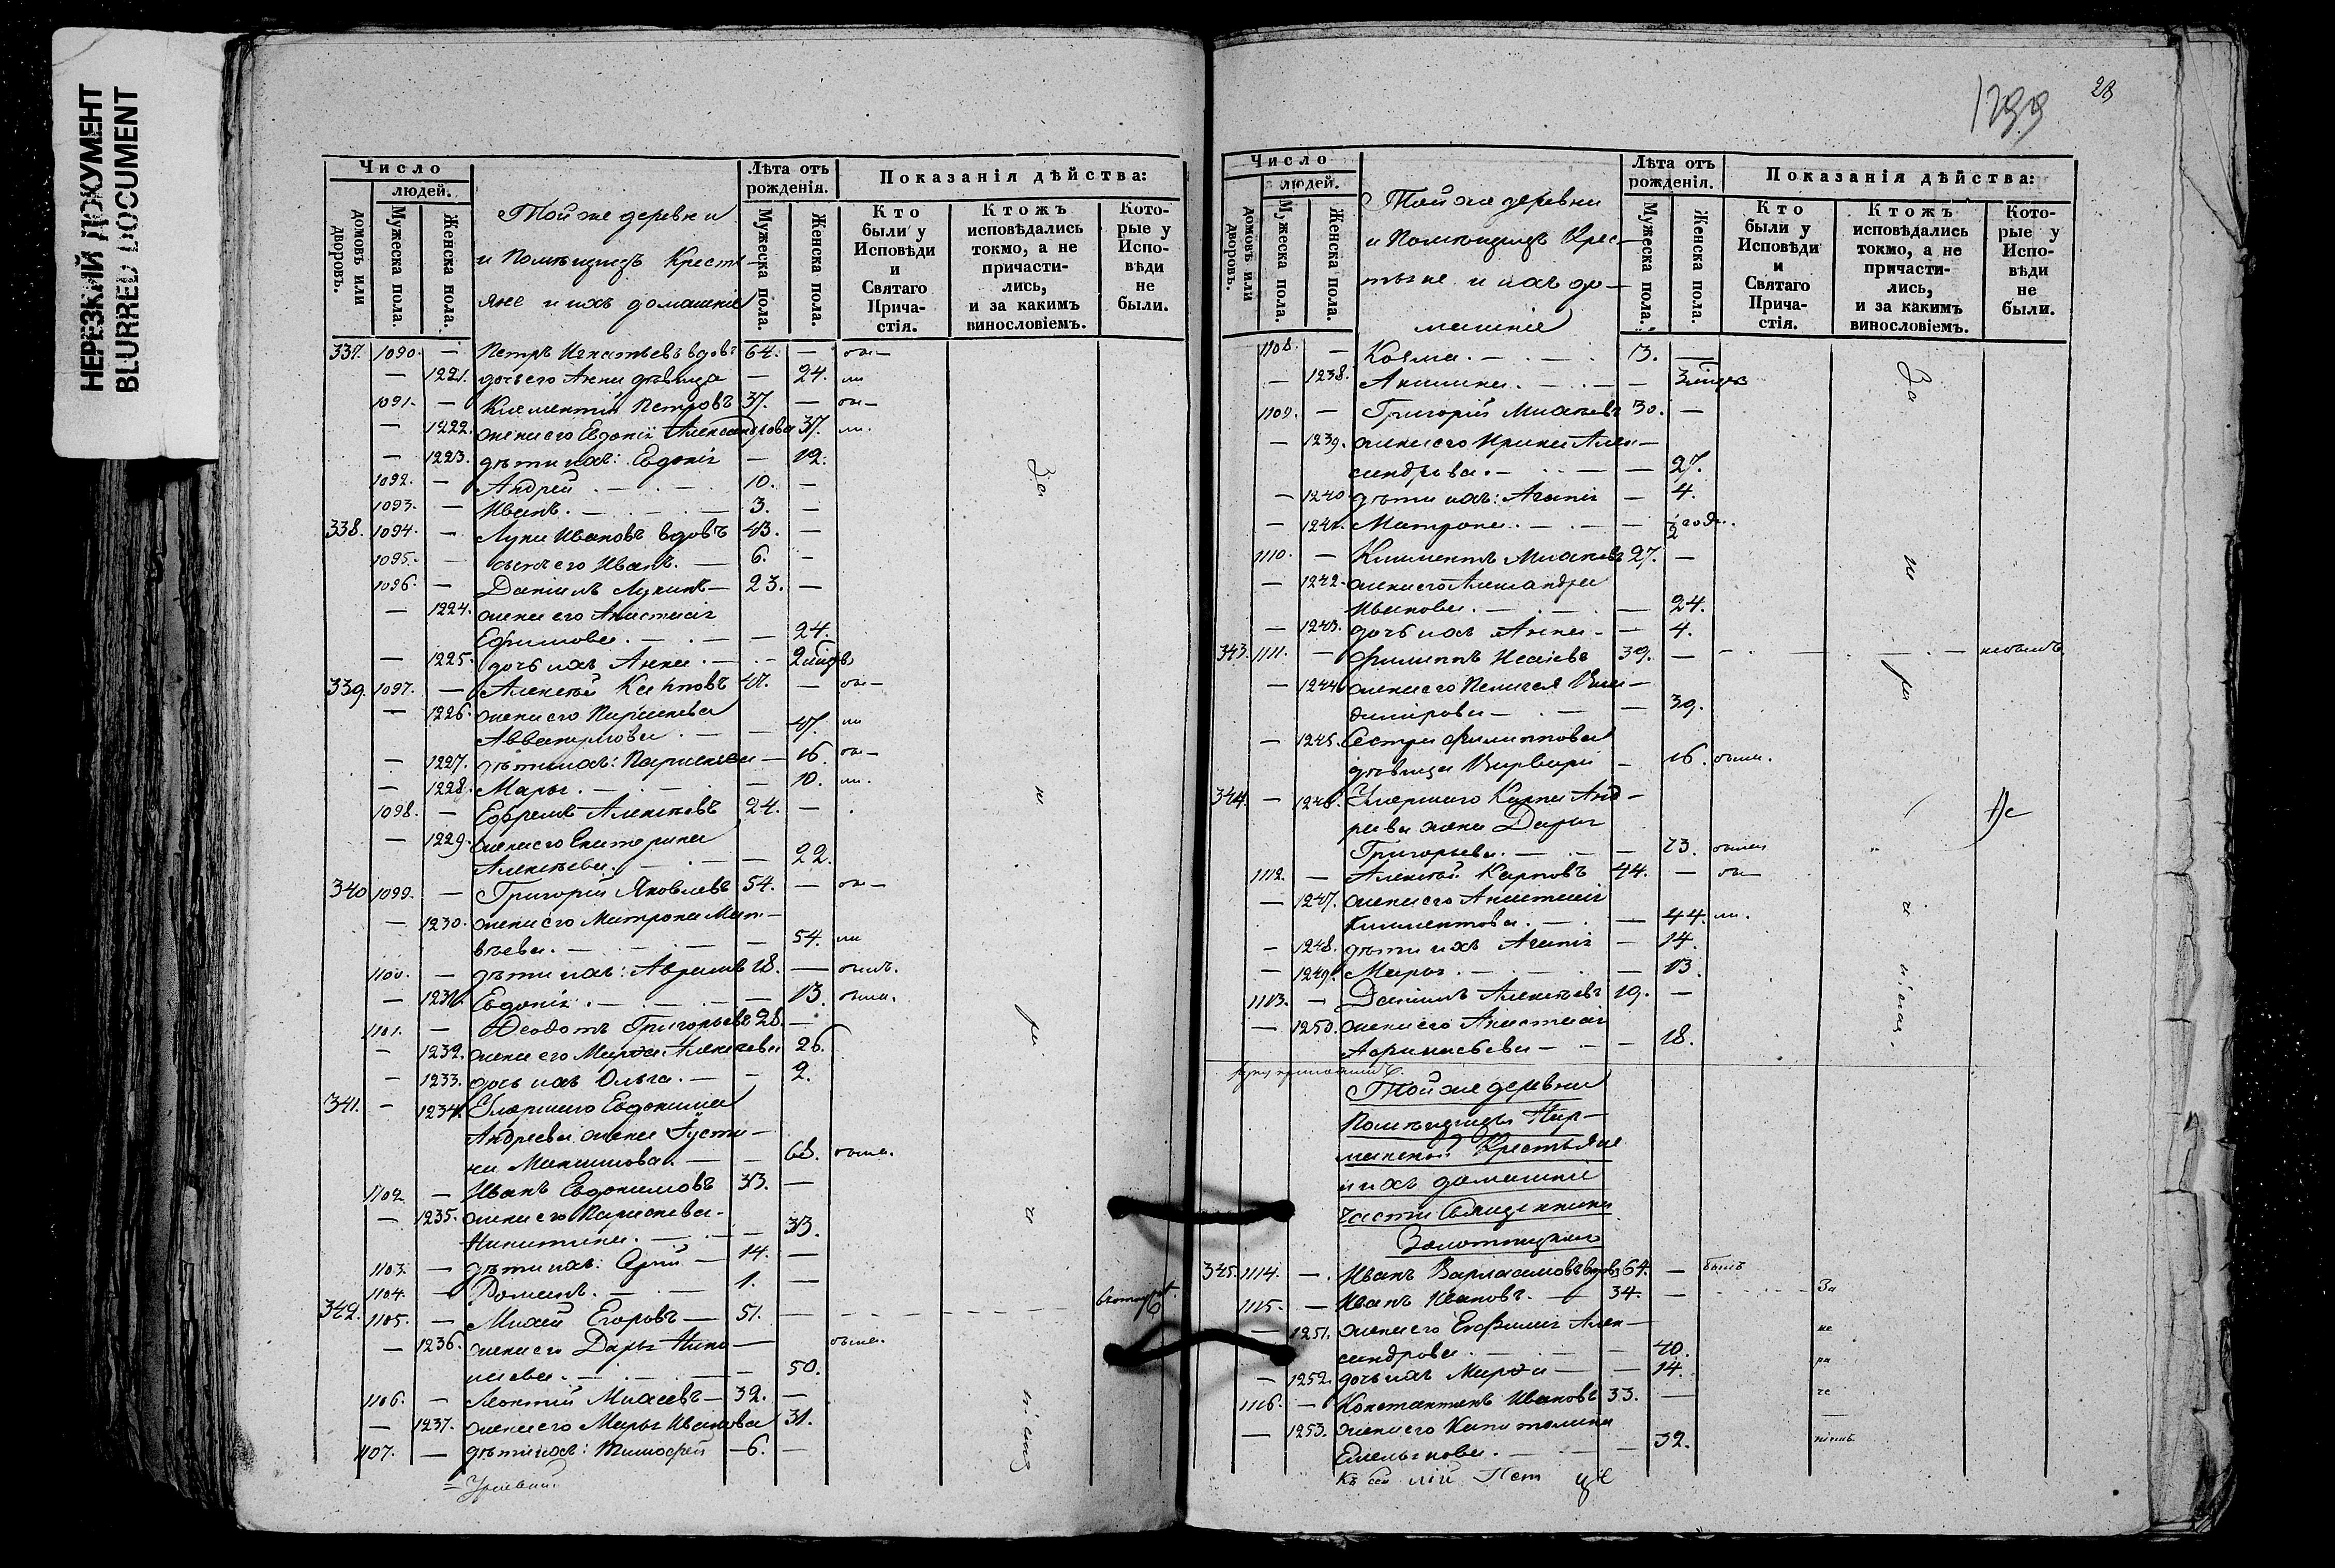 НЕРЕЗКИЙ ДОКУМЕНТ
BLURRED DOCUMENT
Число
людей.
домовъ или дворовъ.
Мужеска пола.
Женска пола.
Той же деревни
и Помѣщицъ Кресть-
яне и ихъ домашніе
Лѣта отъ рожденія.
Мужеска пола.
Женска пола.
Показанія дѣйства:
Кто были у Исповѣди и Святаго Причастія.
Ктожъ исповѣдались токмо, а не причастились, и за какимъ винословіемъ.
Которые у Исповѣди не были.
337. 1090. — Петръ Игнатьевъ вдовъ 64. —
— 1221. дочь его Анна дѣвица — 24.
1091. — Климентій Петровъ 37. —
— 1222. жена его Евдокія Александрова 37.
— 1223. дѣти ихъ: Евдокія — 12.
1092. — Андрей 10. —
1093. — Иванъ 3. —
338. 1094. — Лука Ивановъ вдовъ 43. —
1095. — сынъ его Иванъ 6. —
1096. — Даніилъ Лукинъ 23. —
— 1224. жена его Анастасія
Ефимова — 24.
— 1225. дочь ихъ Анна
339. 1097. — Алексѣй Карповъ 47. —
— 1226. жена его Параскева
— 47.
— 1227. дѣти ихъ: Параскева — 16.
— 1228. Марья — 10.
1098. — Ефремъ Алексѣевъ 24. —
— 1229. жена его Екатерина
Алексѣева — 22.
340 1099. — Григорій Яковлевъ 54. —
— 1230. жена его Матрона Мат-
вѣева — 54.
1100. — дѣти ихъ: Авраамъ 18. — былъ.
— 1231. Евдокія — 13. была.
1101. — Ѳеодотъ Григорьевъ 28. —
— 1232. жена его Марѳа Алексѣева 26.
— 1233. дочь ихъ Ольга — 2.
341. — 1234. Умершаго Евдокима
Андреева жена Іусти-
на Максимова — 68. была.
1102. — Иванъ Евдокимовъ 33. —
— 1235. жена его Параскева
Никитина — 33.
1103. — дѣти ихъ: 14. —
1104. — Романъ 1. —
342. 1105. — Михей Егоровъ 51. —
— 1236. жена его Дарья была.
— 50.
1106. — Леонтій Михеевъ 32. —
— 1237. жена его Марья Иванова 31.
1107. — дѣти ихъ: Тимоѳей 6. —
За
не
ра
че
ніемъ
1299
28
Число
людей.
домовъ или дворовъ.
Мужеска пола.
Женска пола.
Той же деревни
и Помѣщицъ Крес-
тьяне и ихъ до-
машніе
Лѣта отъ рожденія.
Мужеска пола.
Женска пола.
Показанія дѣйства:
Кто были у Исповѣди и Святаго Причастія.
Ктожъ исповѣдались токмо, а не причастились, и за какимъ винословіемъ.
Которые у Исповѣди не были.
1108. — Козма 3. —
— 1238. Акилина —
1109. — Григорій Михеевъ 30. —
— 1239. жена его Ирина Алек-
сандрова — 27.
— 1240 дѣти ихъ: Агапія — 4.
— 1241. Матрона — ½ года.
1110. — Климентъ Михеевъ 27. —
— 1242. жена его Александра
Иванова — 24.
— 1243. дочь ихъ Анна — 4.
343. 1111. — Филиппъ Исаевъ 39. — небылъ.
— 1244 жена его Пелагея Вла-
димірова — 39.
— 1245. Сестра Филиппова
дѣвица Варвара — 16. была.
344. — 1246. Умершаго Карпа Анд-
реева жена Дарья
Григорьева — 73. была
1112. — Алексѣй Карповъ 44. —
— 1247. жена его Анастасія
Климентова — 44.
— 1248. дѣти ихъ Агапія — 14.
— 1249. Марья — 13.
1113. — Даніилъ Алексѣевъ 19. —
— 1250. жена его Анастасія
Аѳанасьева — 18.
За
не
ра
че
ніемъ
Той же деревни
Помѣщицы Нар-
мацкой Крестьяне
и ихъ домашніе
части Священника
Золотницкаго
345. 1114. — Иванъ Варлаамовъ вдовъ 64. — былъ
1115. — Иванъ Ивановъ 34. — За
— 1251. жена его Евфимія Алек- не
сандрова — 40.
— 1252. дочь ихъ Марѳа — 14. ра
1116. — Константинъ Ивановъ 33. — че
— 1253. жена его Капитолина
Емельянова — 32. ніемъ